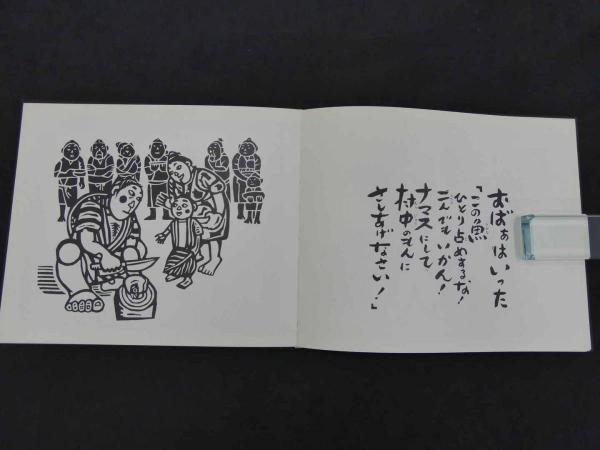 おばぁはいった
「この魚
ひとり占めするな!
二人でもいかん!
ナマスにして
村中のもんに
さしあげなさい!」